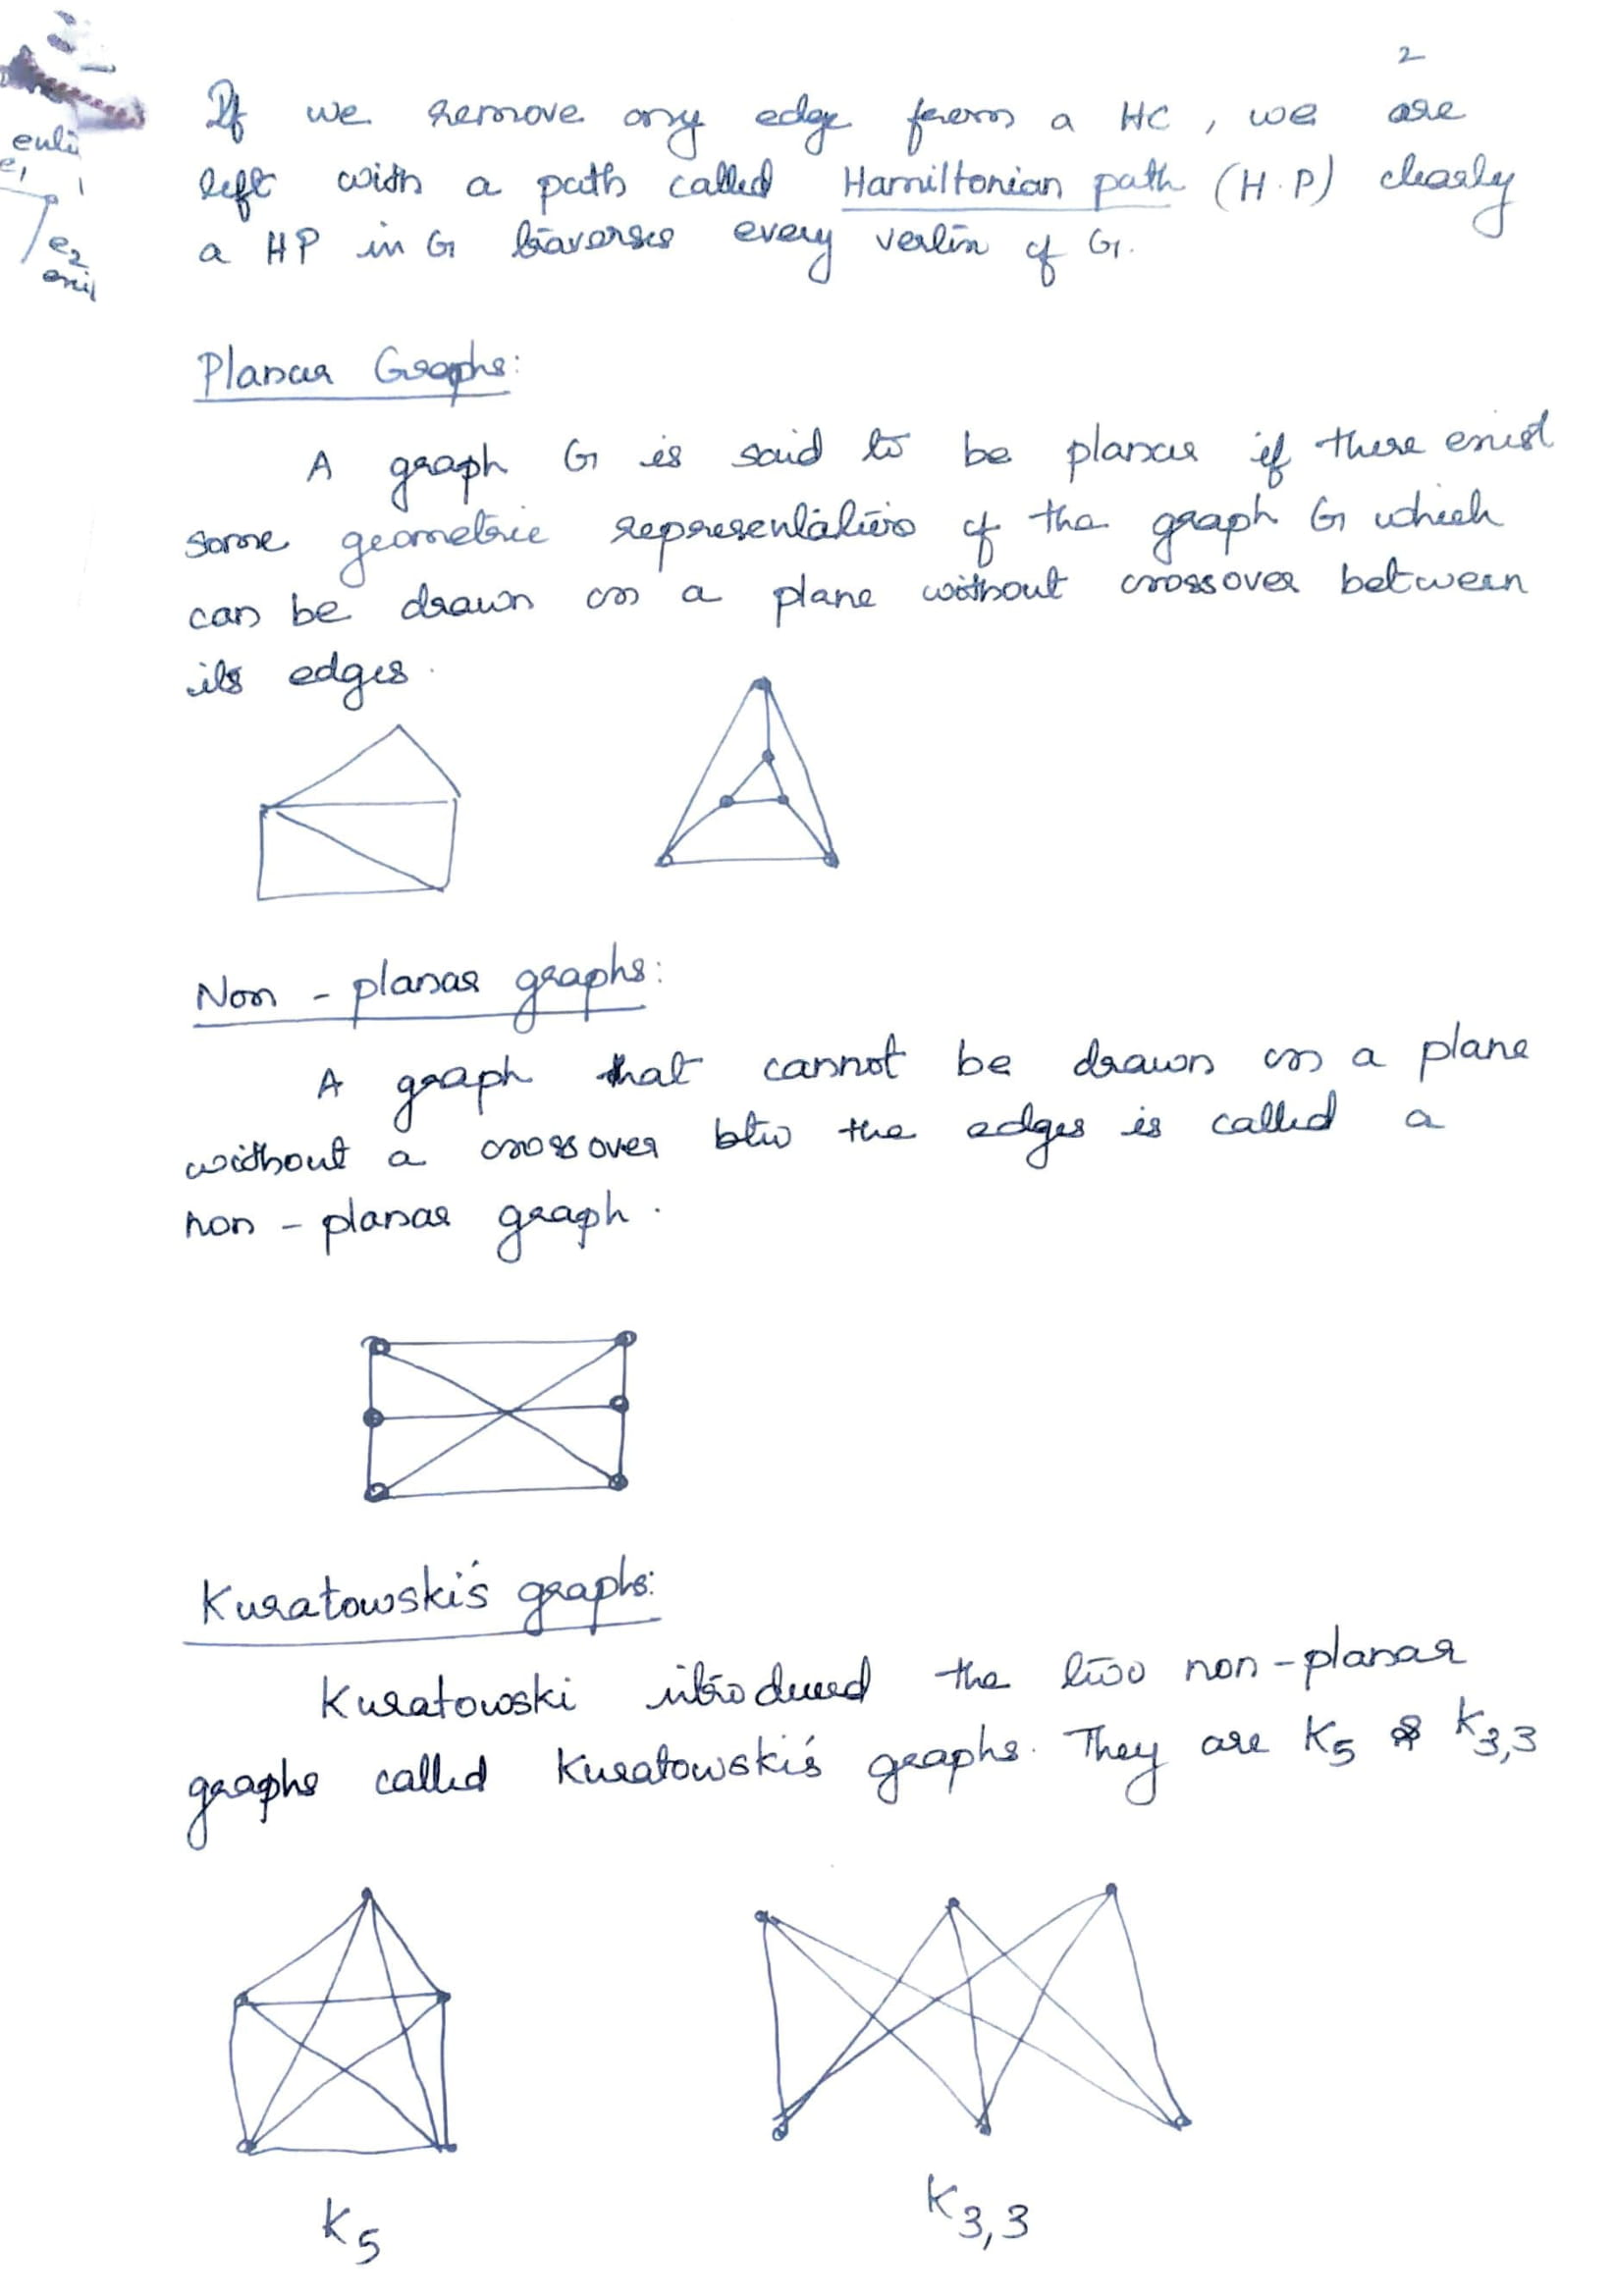 2
If we remove any edge from a HC, we are
left with a path called Hamiltonian path (H.P) clearly
a HP in G traverses every vertex of G.
e1 1
e2
Planar Graphs:
A graph G is said to be planar if there exist
some geometric representation of the graph G which
can be drawn on a plane without crossover between
its edges.
Non - planar graphs:
A graph that cannot be drawn on a plane
without a crossover btw the edges is called a
non - planar graph.
Kuratowski's graphs:
Kuratowski introduced the two non-planar
graphs called Kuratowski's graphs. They are K5 & K3,3
K5
K3,3